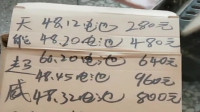 天 48.12电池 280元
能 48.20电池 480元
超 60.20电池 640元
48.45电池 960元
威 48.32电池 800元